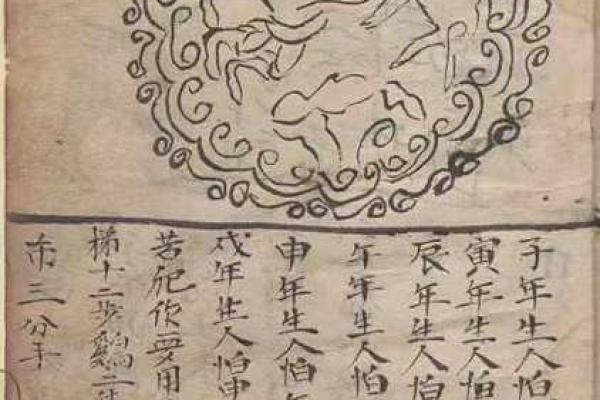 子年生人怕
寅年生人怕
辰年生人怕
午年生人怕
申年生人怕
戌年生人怕申
若犯作要用
梯十二步鷄二
布三分